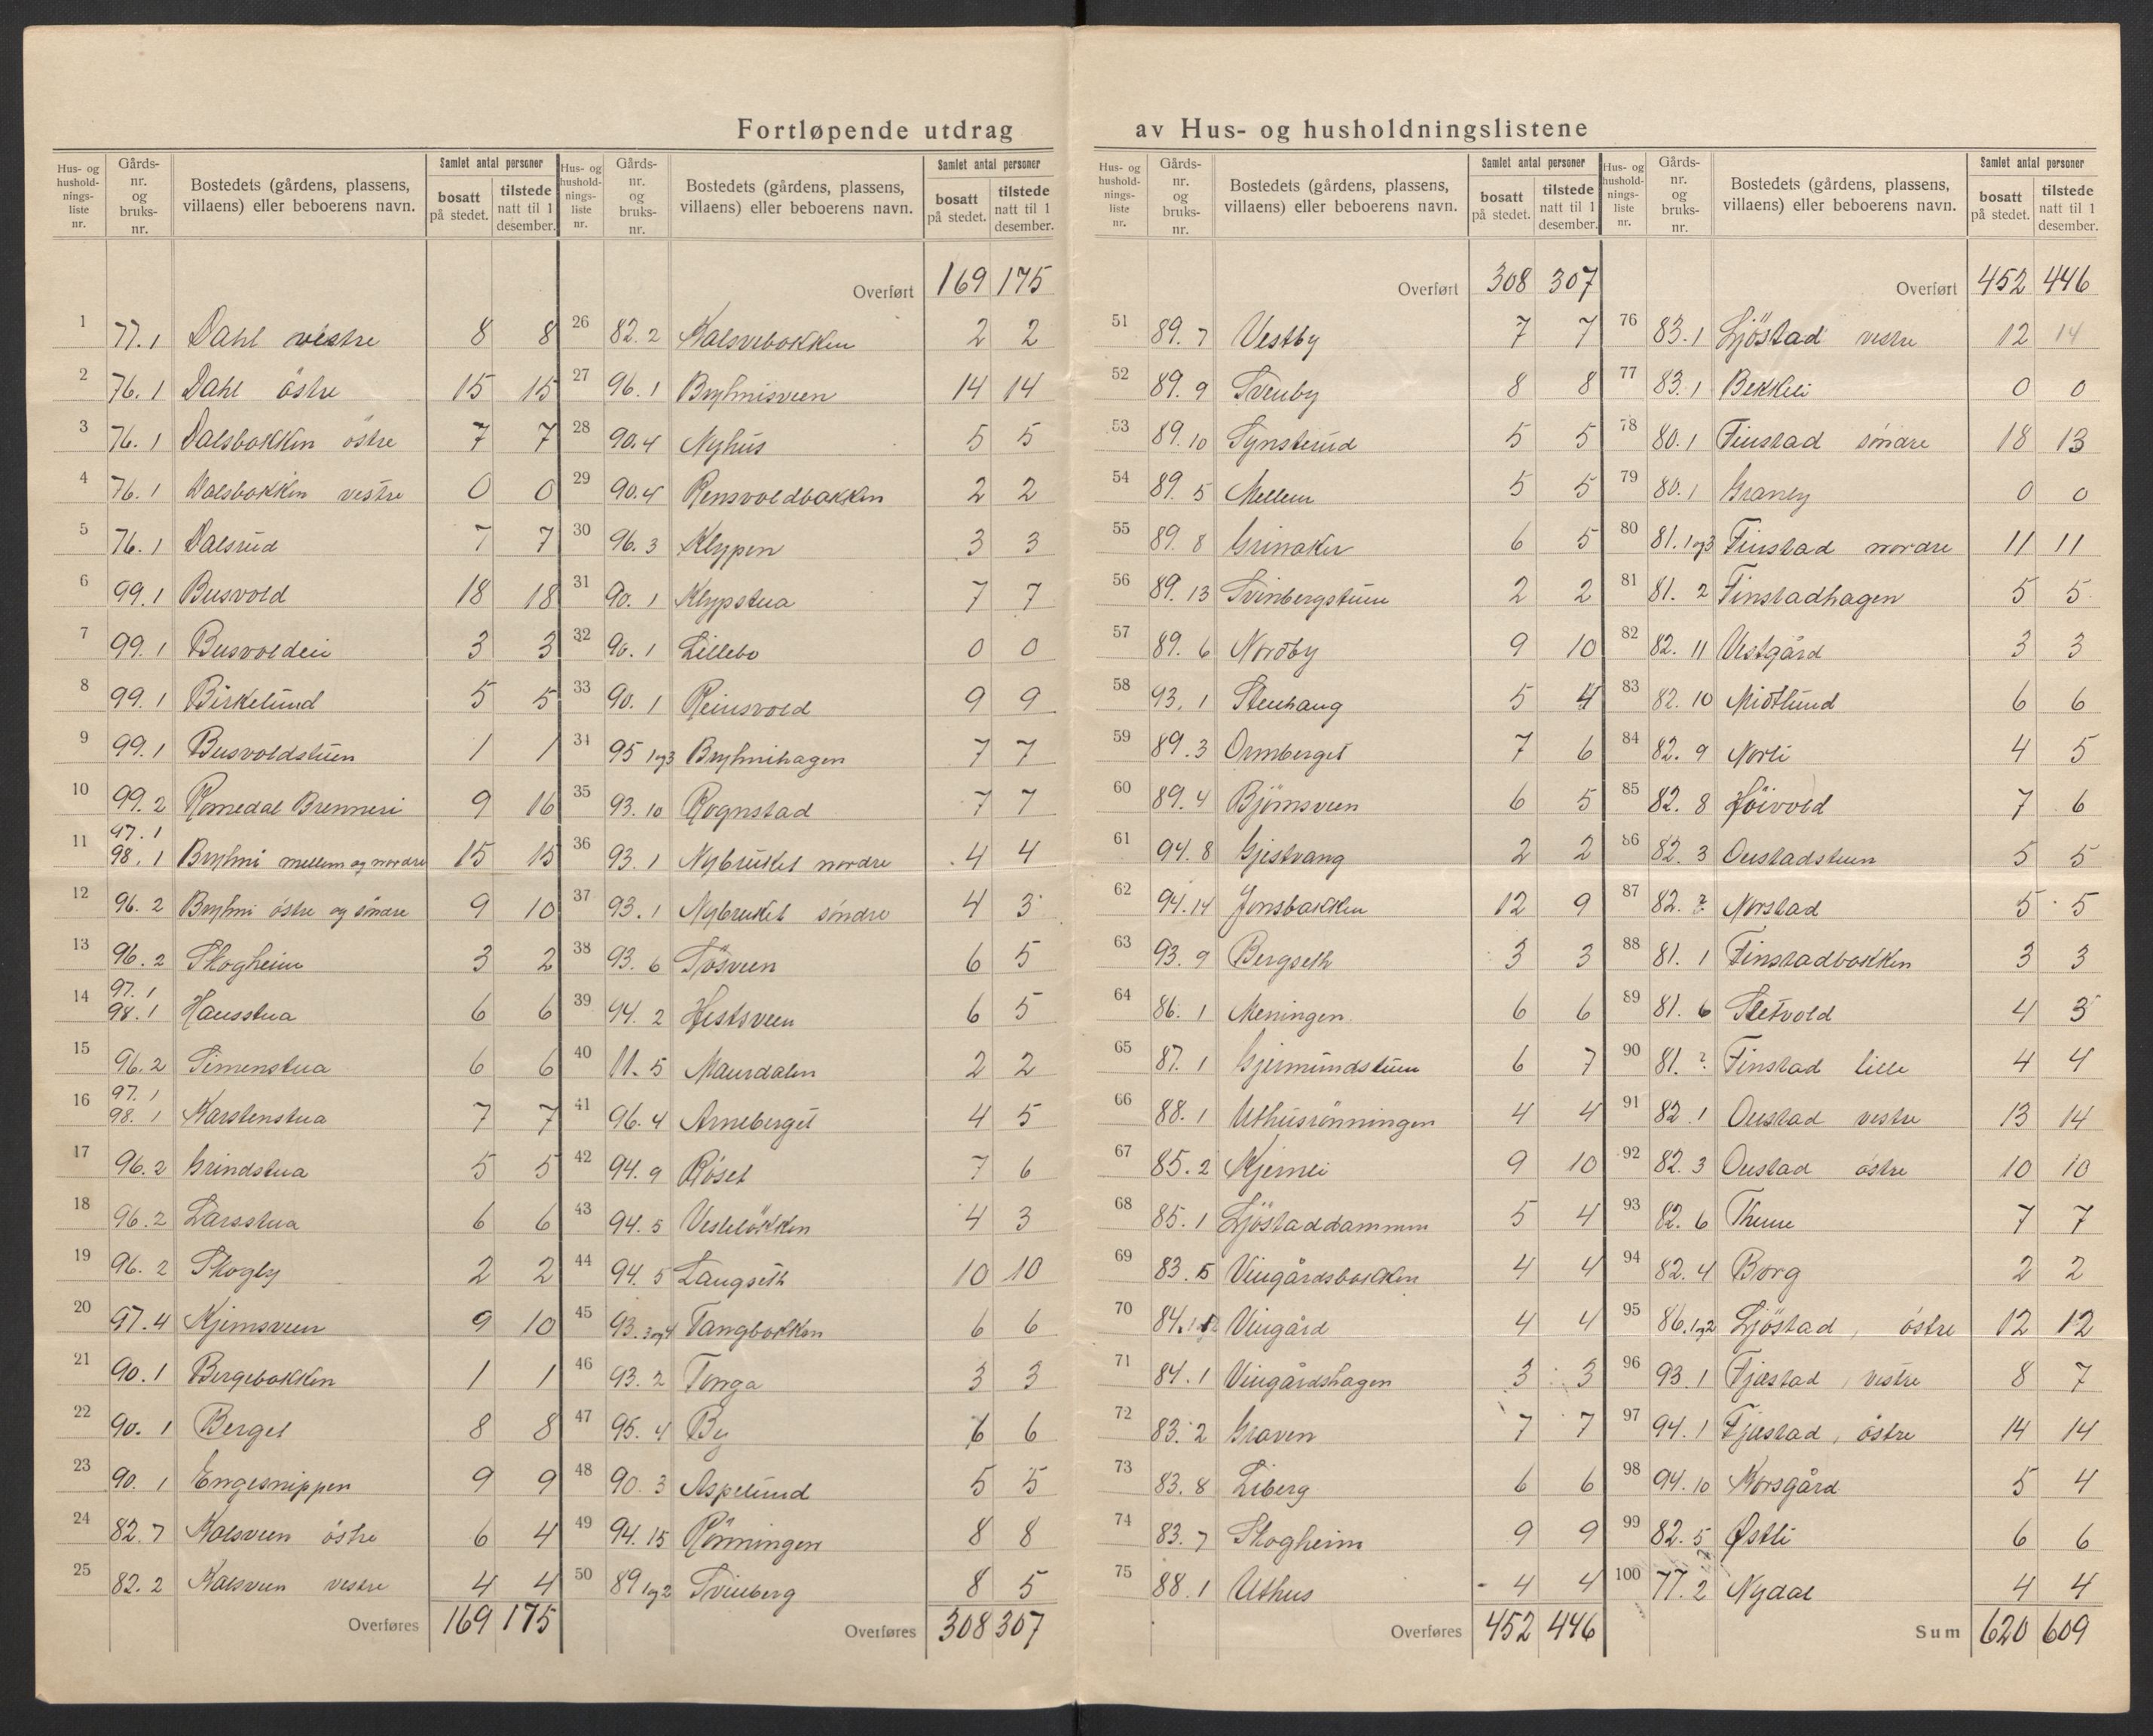 Fortløpende utdrag av Hus- og husholdningslistene
Hus- og husholdnings-liste nr. | Gårds-nr. og bruks-nr. | Bostedets (gårdens, plassens, villaens) eller beboerens navn. | Samlet antal personer | bosatt på stedet. | tilstede natt til 1 desember.
1 77.1 Dahl vestre 8 8
2 76.1 Dahl østre 15 15
3 76.1 Dalsbakken östre 7 7
4 76.1 Dalsbakken vestre 0 0
5 76.1 Dalsrud 7 7
6 99.1 Busvold 18 18
7 99.1 Busvoldeie 3 3
8 99.1 Birkelund 5 5
9 99.1 Busvoldstuen 1 1
10 99.2 Romedal Brenneri 9 16
11 97.1 98.1 Bryhni mellem og nordre 15 15
12 96.2 Bryhni östre og söndre 9 10
13 96.2 Skogheim 3 2
14 97.1 98.1 Hansstua 6 6
15 96.2 Simenstua 6 6
16 97.1 98.1 Karstenstua 7 7
17 96.2 Grindstua 5 5
18 96.2 Larsstua 6 6
19 96.2 Skogly 2 2
20 97.4 Kjemsveen 9 10
21 90.1 Bergebakken 1 1
22 90.1 Berget 8 8
23 90.1 Engesnippen 9 9
24 82.7 Kalsveen östre 6 4
25 82.2 Kalsveen vestre 4 4
Overføres 169 175
Hus- og husholdnings-liste nr. | Gårds-nr. og bruks-nr. | Bostedets (gårdens, plassens, villaens) eller beboerens navn. | Samlet antal personer | bosatt på stedet. | tilstede natt til 1 desember.
Overført 169 175
26 82.2 Kalsvebakken 2 2
27 96.1 Bryhnisveen 14 14
28 90.4 Nyhus 5 5
29 90.4 Rensvoldbakken 2 2
30 96.3 Klyppen 3 3
31 90.1 Klypstua 7 7
32 90.1 Lillebo 0 0
33 90.1 Reinsvold 9 9
34 95 1og3 Bryhnihagen 7 7
35 93.10 Rognstad 7 7
36 93.1 Nybruket nordre 4 4
37 93.1 Nybruket söndre 4 3
38 93.6 Tösveen 6 5
39 94.2 Hestsveen 6 5
40 11.5 Maurdalen 2 2
41 96.4 Arneberget 4 5
42 94.9 Röset 7 6
43 94.5 Veslelökken 4 3
44 94.5 Langseth 10 10
45 93.3og4 Tangbakken 6 6
46 93.2 Tonga 3 3
47 95.4 By 6 6
48 90.3 Aspelund 5 5
49 94.15 Rönningen 8 8
50 89 1og2 Tvinberg 8 5
Overføres 308 307
Hus- og husholdnings-liste nr. | Gårds-nr. og bruks-nr. | Bostedets (gårdens, plassens, villaens) eller beboerens navn. | Samlet antal personer | bosatt på stedet. | tilstede natt til 1 desember.
Overført 308 307
51 89.7 Vestby 7 7
52 89.9 Tveuby 8 8
53 89.10 Tynsterud 5 5
54 89.5 Mellem 5 5
55 89.8 Grinaker 6 5
56 89.13 Tvinbergstuen 2 2
57 89.6 Nordby 9 10
58 93.1 Stenhaug 5 4
59 89.3 Ormberget 7 6
60 89.4 Björnsveen 6 5
61 94.8 Gjestvang 2 2
62 94.14 Jonsbakken 12 9
63 93.9 Bergseth 3 3
64 86.1 Meningen 6 6
65 87.1 Gjermundstuen 6 7
66 88.1 Uthusrönningen 4 4
67 85.2 Kjernli 9 10
68 85.1 Ljöstaddammen 5 4
69 83.5 Vingårdsbakken 4 4
70 84.1 Vingård 4 4
71 84.1 Vingårdshagen 3 3
72 83.2 Graven 7 7
73 83.8 Liberg 6 6
74 83.7 Skogheim 9 9
75 88.1 Uthus 4 4
Overføres 452 446
Hus- og husholdnings-liste nr. | Gårds-nr. og bruks-nr. | Bostedets (gårdens, plassens, villaens) eller beboerens navn. | Samlet antal personer | bosatt på stedet. | tilstede natt til 1 desember.
Overført 452 446
76 83.1 Ljöstad vestre 12 14
77 83.1 Bekkeli 0 0
78 80.1 Finstad söndre 18 13
79 80.1 Granly 0 0
80 81.1og3 Finstad nordre 11 11
81 81.2 Finstadhagen 5 5
82 82.11 Vestgård 3 3
83 82.10 Midtlund 6 6
84 82.9 Norli 4 5
85 82.8 Höivold 7 6
86 82.3 Oustadstuen 5 5
87 82.? Norstad 5 5
88 81.1 Finstadbakken 3 3
89 81.6 Sletvold 4 3
90 81.? Finstad lille 4 4
91 82.1 Oustad vestre 13 14
92 82.3 Oustad östre 10 10
93 82.6 Thune 7 7
94 82.4 Borg 2 2
95 86.1og2 Ljöstad, östre 12 12
96 93.1 Fjæstad, vestre 8 7
97 94.1 Fjæstad, östre 14 14
98 94.10 Korsgård 5 4
99 82.5 Østli 6 6
100 77.2 Nydal 4 4
Sum 620 609